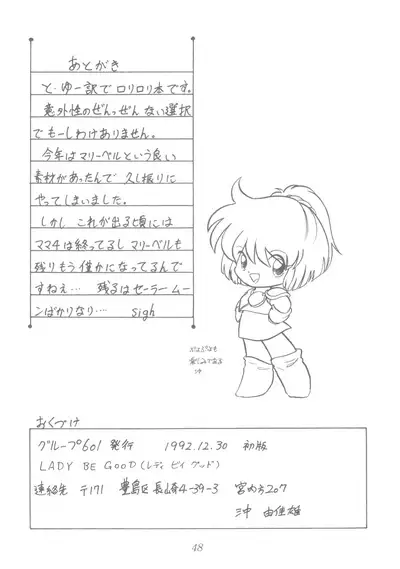 あとがき
と、ゆー訳でロリロリ本です。
意外性のぜんっぜんない選択
でもーしわけありません。
今年はマリーベルという良い
素材があったんで久し振りに
やってしまいました。
しかし これが出る頃には
ママ4は終ってるし マリーベルも
残りもう僅かになってるんで
すねえ… 残るはセーラームー
ンばかりなり…. sigh
おくづけ
グループ601 発行 1992.12.30 初版
LADY BE GOOD (レディ ビィ グッド)
連絡先 〒171 豊島区長崎4-39-3 宮内方207
沖 由佳雄
48